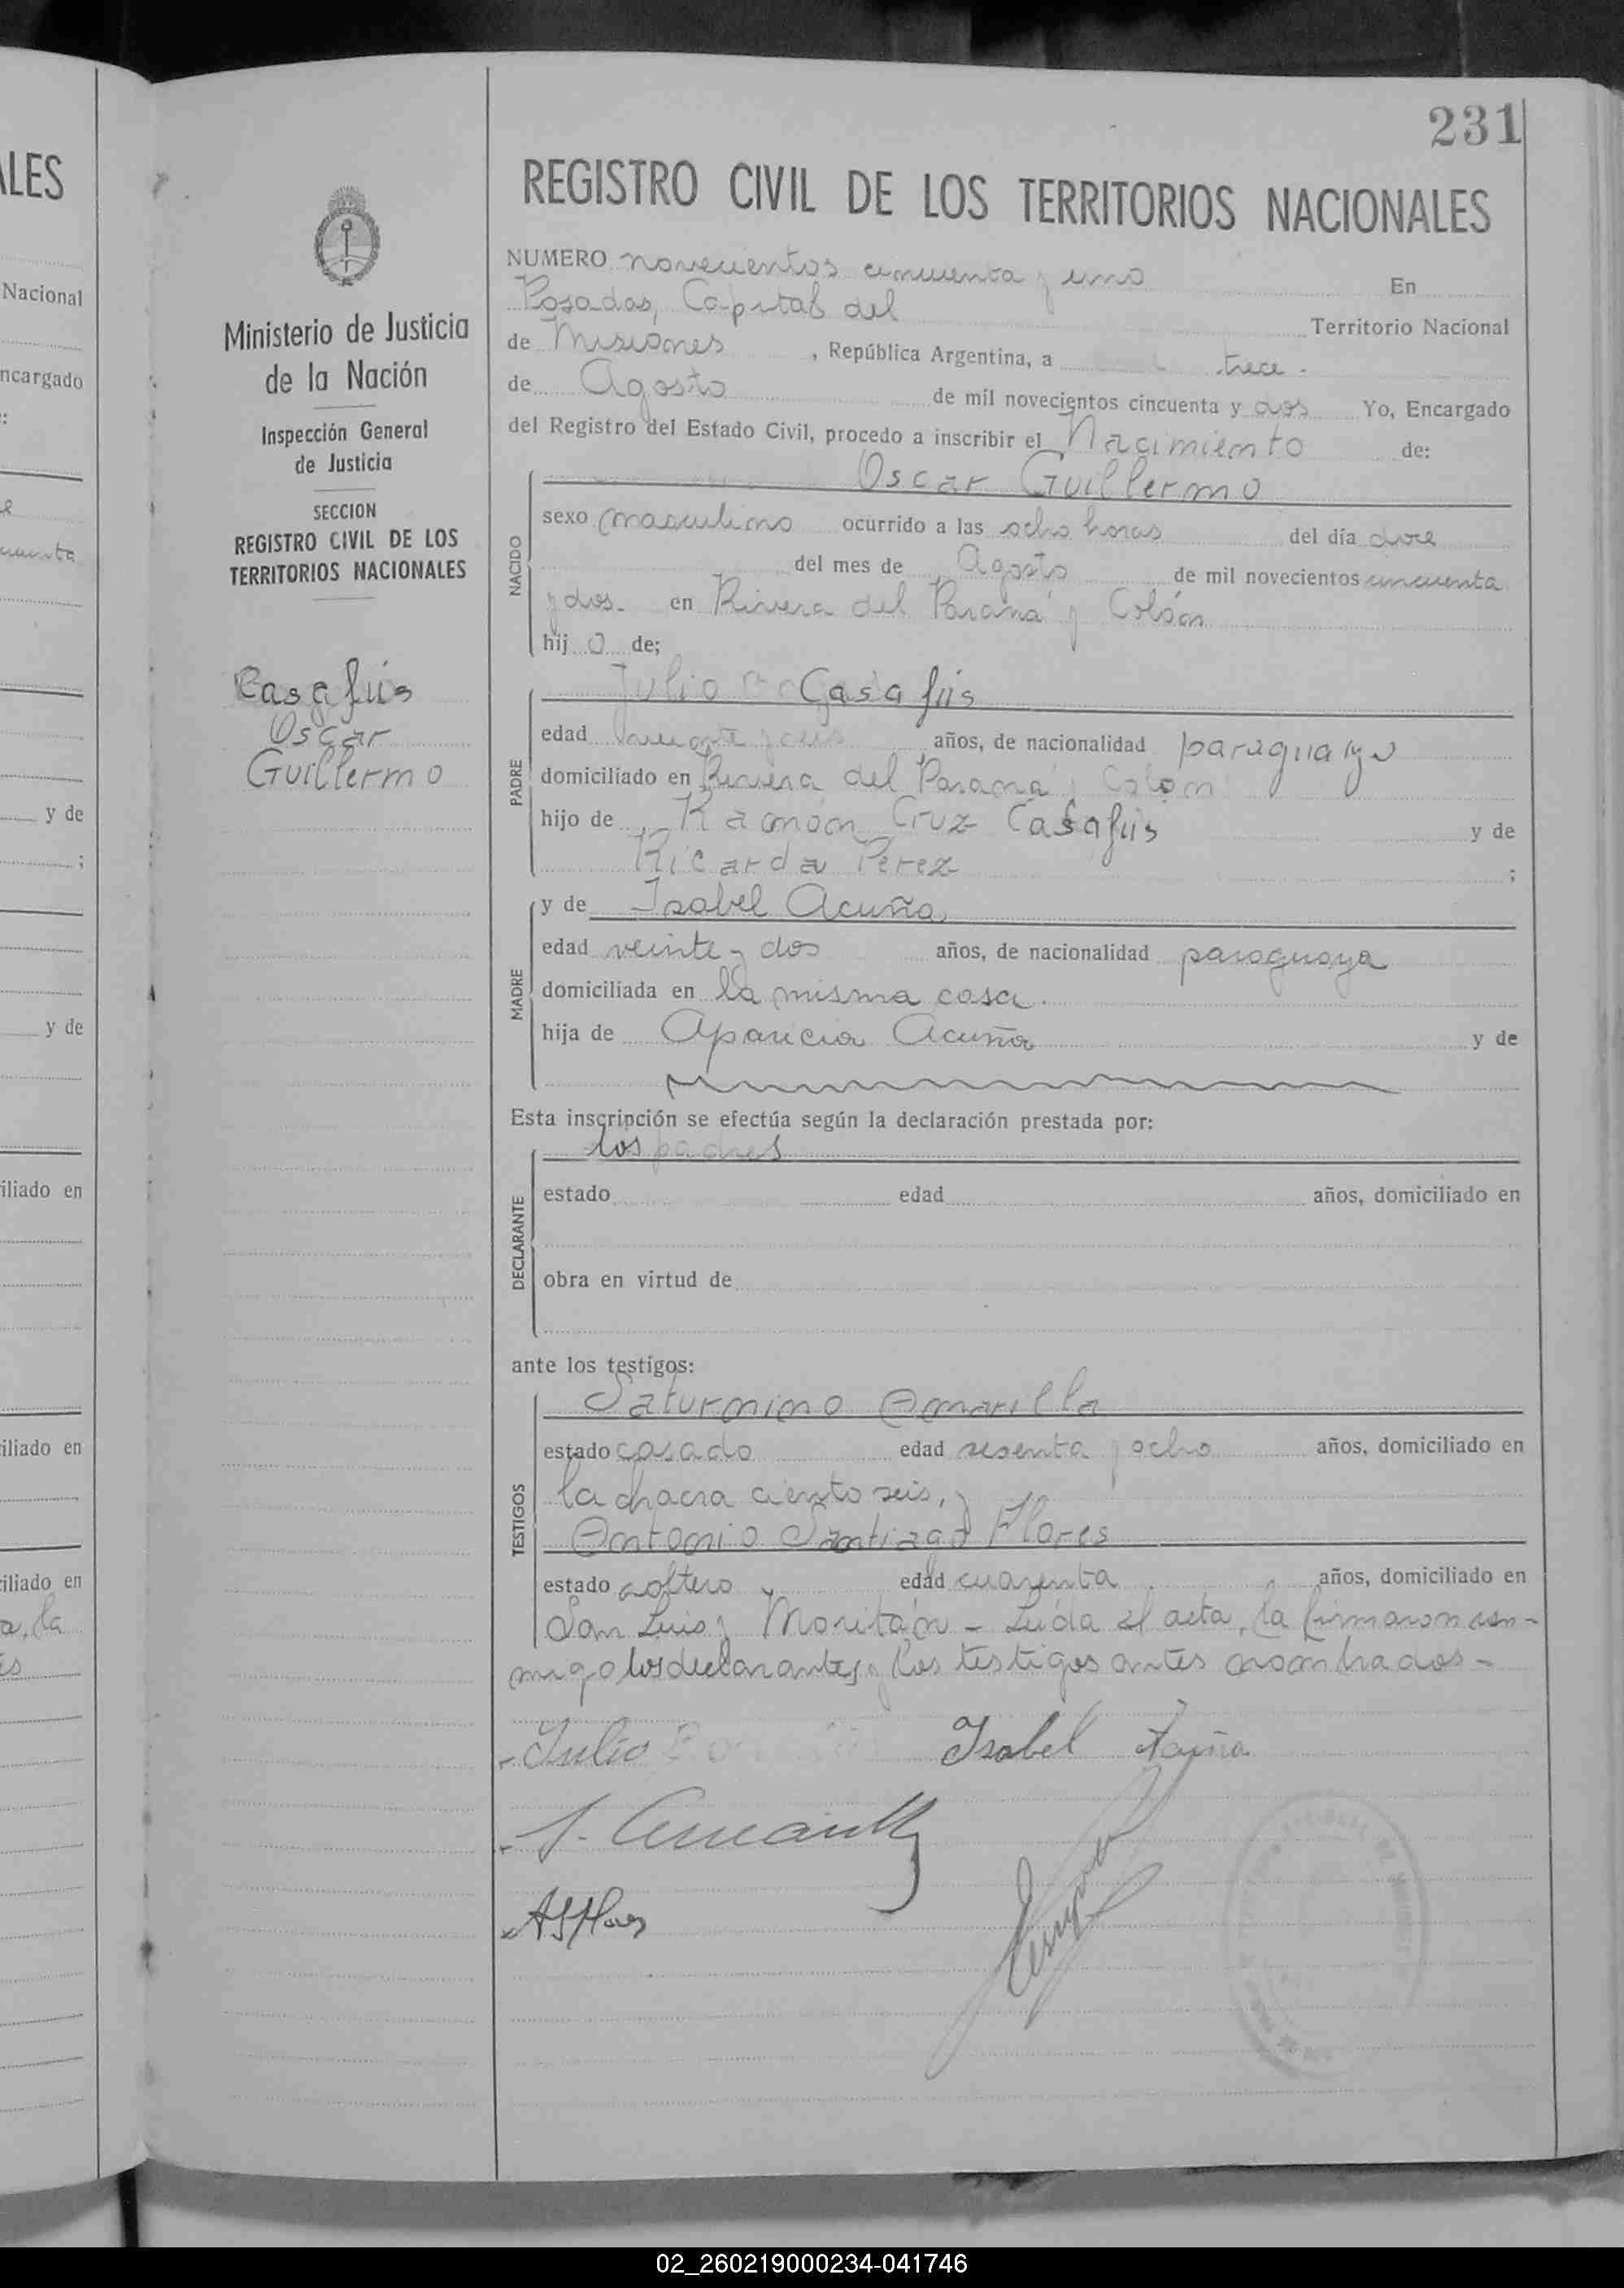 231
REGISTRO CIVIL DE LOS TERRITORIOS NACIONALES
Ministerio de Justicia
de la Nación
Inspección General
de Justicia
SECCION
REGISTRO CIVIL DE LOS
TERRITORIOS NACIONALES
Casafús
Oscar
Guillermo
NUMERO novecientos cincuenta y uno En
Posadas, Capital del Territorio Nacional
de Misiones, República Argentina, a trece
de Agosto de mil novecientos cincuenta y dos Yo, Encargado
del Registro del Estado Civil, procedo a inscribir el Nacimiento de:
Oscar Guillermo
NACIDO
sexo masculino ocurrido a las ocho horas del día doce
del mes de Agosto de mil novecientos cincuenta
y dos - en Rivera del Paraná y Colón
hijo de;
PADRE
Julio Casafús
edad años, de nacionalidad paraguayo
domiciliado en Rivera del Paraná y Colón
hijo de Ramón Cruz Casafús y de
Ricarda Perez ;
MADRE
y de Isabel Acuña
edad veinte y dos años, de nacionalidad paraguaya
domiciliada en la misma casa.
hija de Aparicia Acuña y de
Esta inscripción se efectúa según la declaración prestada por:
los padres
DECLARANTE
estado edad años, domiciliado en
obra en virtud de
ante los testigos:
TESTIGOS
Saturnino Amarilla
estado casado edad sesenta y ocho años, domiciliado en
la chacra ciento seis, y
Antonio Santiago Flores
estado soltero edad cuarenta años, domiciliado en
San Luis y Moritán - Leída el acta, la firmaron con-
migo los declarantes y los testigos antes nombrados -
Julio Isabel Acuña
S. Amarilla
ASFlores
ALES
Nacional
ncargado
:
y de
;
y de
iliado en
iliado en
iliado en
a, la
02_260219000234-041746